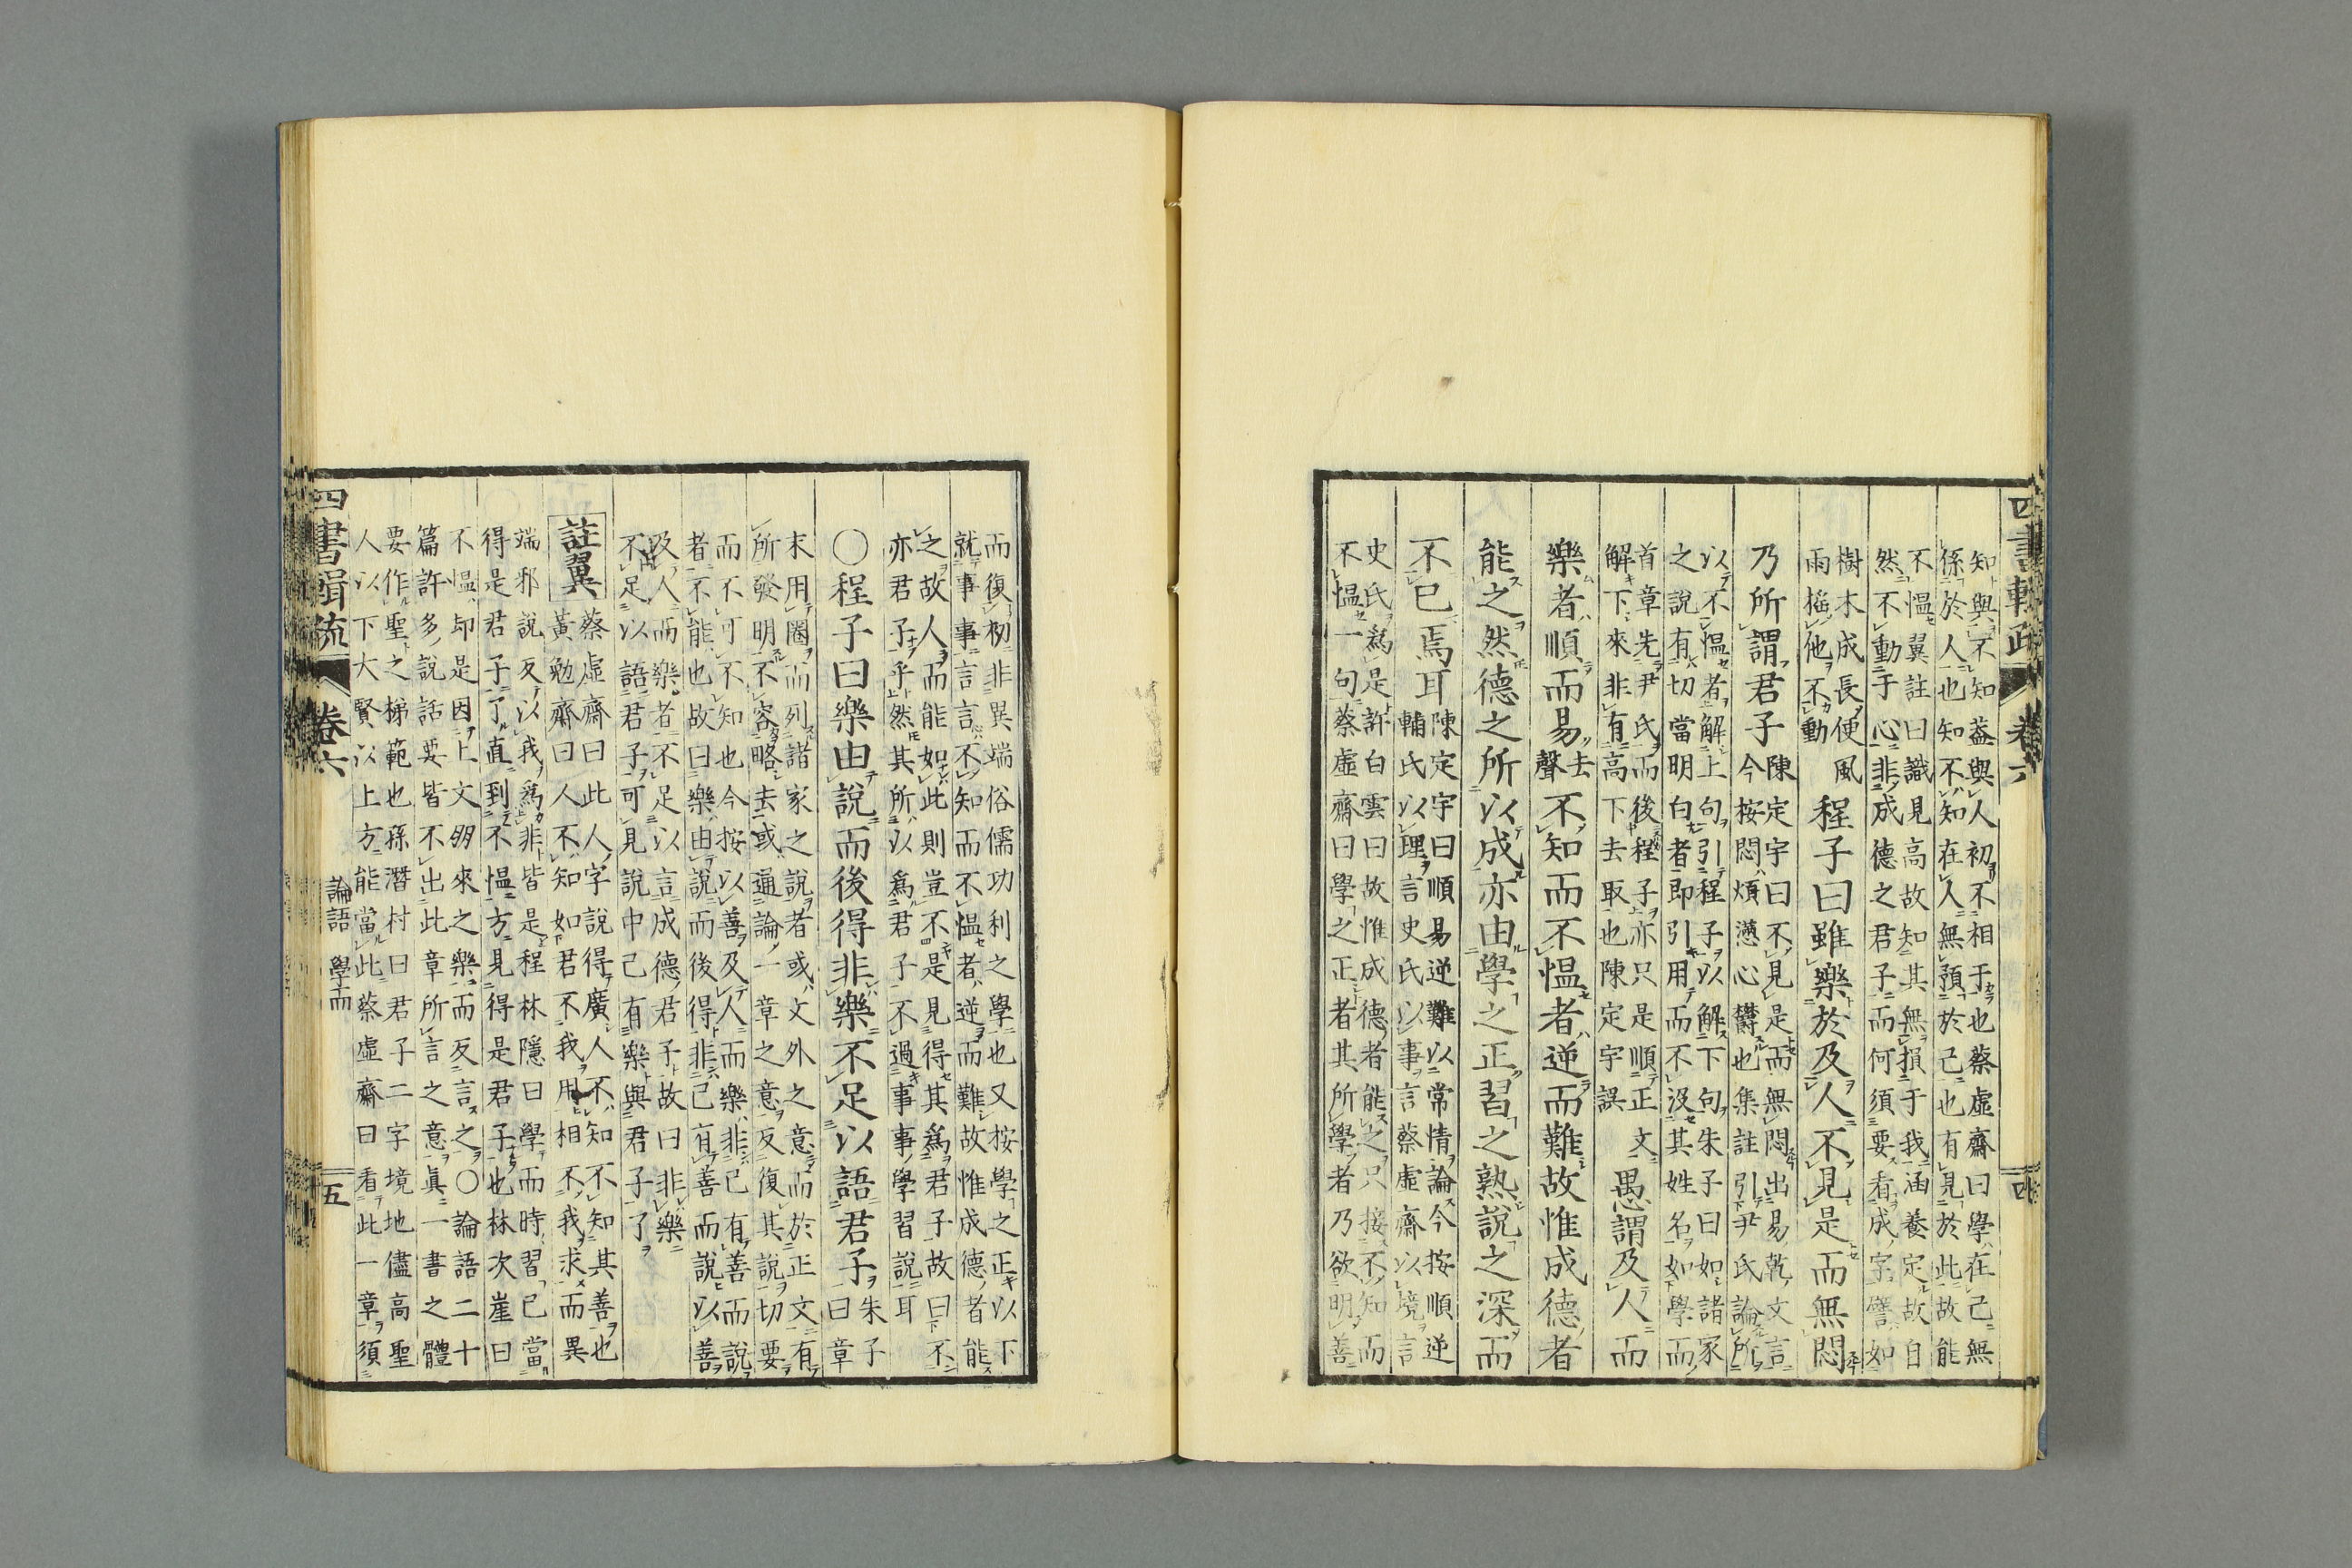 知與不知蓋與人初不相干也蔡虛齋曰學在己無
係於人也知不知在人無預於己也有見於此故能
不慍翼註曰識見高故知其無損于我涵養定故自
然不動于心非成德之君子而何須要看成字譬如
樹木成長便風
雨搖他不動
程子曰雖樂於及人不見是而無悶
乃所謂君子
陳定宇曰不見是而無悶出易乾文言
今按悶煩懣心鬱也集註引尹氏論所
以不慍者解上句引程子以解下句朱子曰如諸家
之說有切當明白者即引用而不沒其姓名如學而
首章先尹氏而後程子亦只是順正文
解下來非有高下去取也陳定宇誤
愚謂及人而
樂者順而易
去
聲
不知而不慍者逆而難故惟成德者
能之然德之所以成亦由學之正習之熟說之深而
不已焉耳
陳定宇曰順易逆難以常情論今按順逆
輔氏以理言史氏以事言蔡虛齋以境言
史氏爲是許白雲曰故惟成德者能之只接不知而
不慍一句蔡虛齋曰學之正者其所學者乃欲明善
四書輯疏 卷六 四
而復初非異端俗儒功利之學也又按學之正以下
就事事言言不知而不慍者逆而難故惟成德者能
之故人而能如此則豈不是見得其爲君子故曰不
亦君子乎然其所以爲君子不過事事學習說耳
○程子曰樂由說而後得非樂不足以語君子
朱子
曰章
末用圈而列諸家之說者或文外之意而於正文有
所發明不容略去或通論一章之意反復其說切要
而不可不知也今按以善及人而樂非己有善而說
者不能也故曰樂由說而後得非己有善而說以善
及人而樂者不足以言成德君子故曰非樂
不足以語君子可見說中已有樂與君子了
註翼
蔡虛齋曰此人字說得廣人不知不知其善也
黃勉齋曰人不知如君不我用相不我求而異
端邪說反以我爲非皆是程林隱曰學而時習已當
得是君子了直到不慍方見得是君子也林次崖曰
不慍却是因上文朋來之樂而反言之○論語二十
篇許多說話要皆不出此章所言之意眞一書之體
要作聖之梯範也孫潛村曰君子二字境地儘高聖
人以下大賢以上方能當此蔡虛齋曰看此一章須
四書輯疏 卷六 論語 學而 五